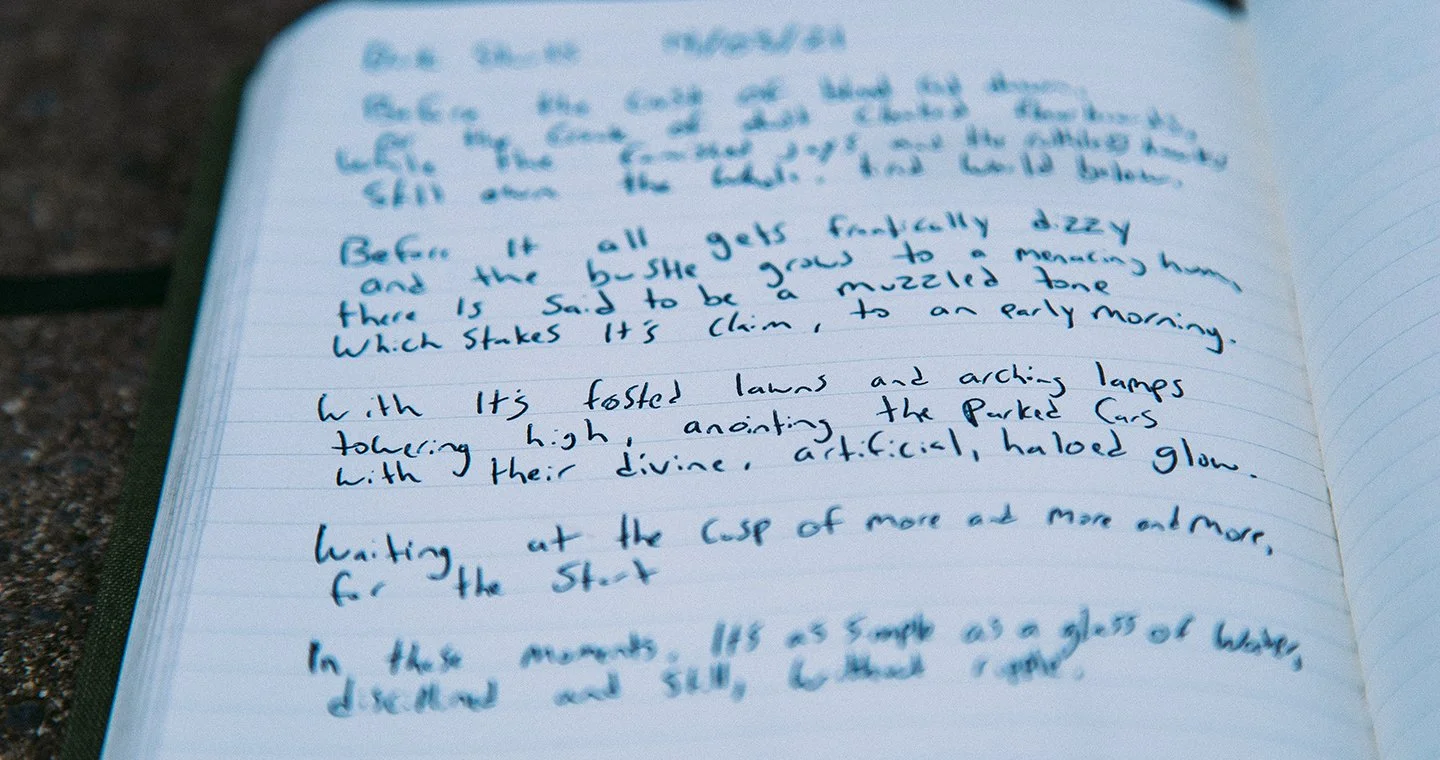 Before the of
of the of dust
While the and the
Still own the world below.
Before It all gets frantically dizzy
and the bustle grows to a menacing hum,
there is Said to be a muzzled tone
Which Stakes It's Claim, to an early morning.
With It's fosted lawns and arching lamps
towering high, anointing the Parked Cars
with their divine, artificial, haloed glow.
Waiting at the Cusp of more and more and more,
for the Start
In these moments, It's as Simple as a glass of Water,
distilled and Still, without ripple.